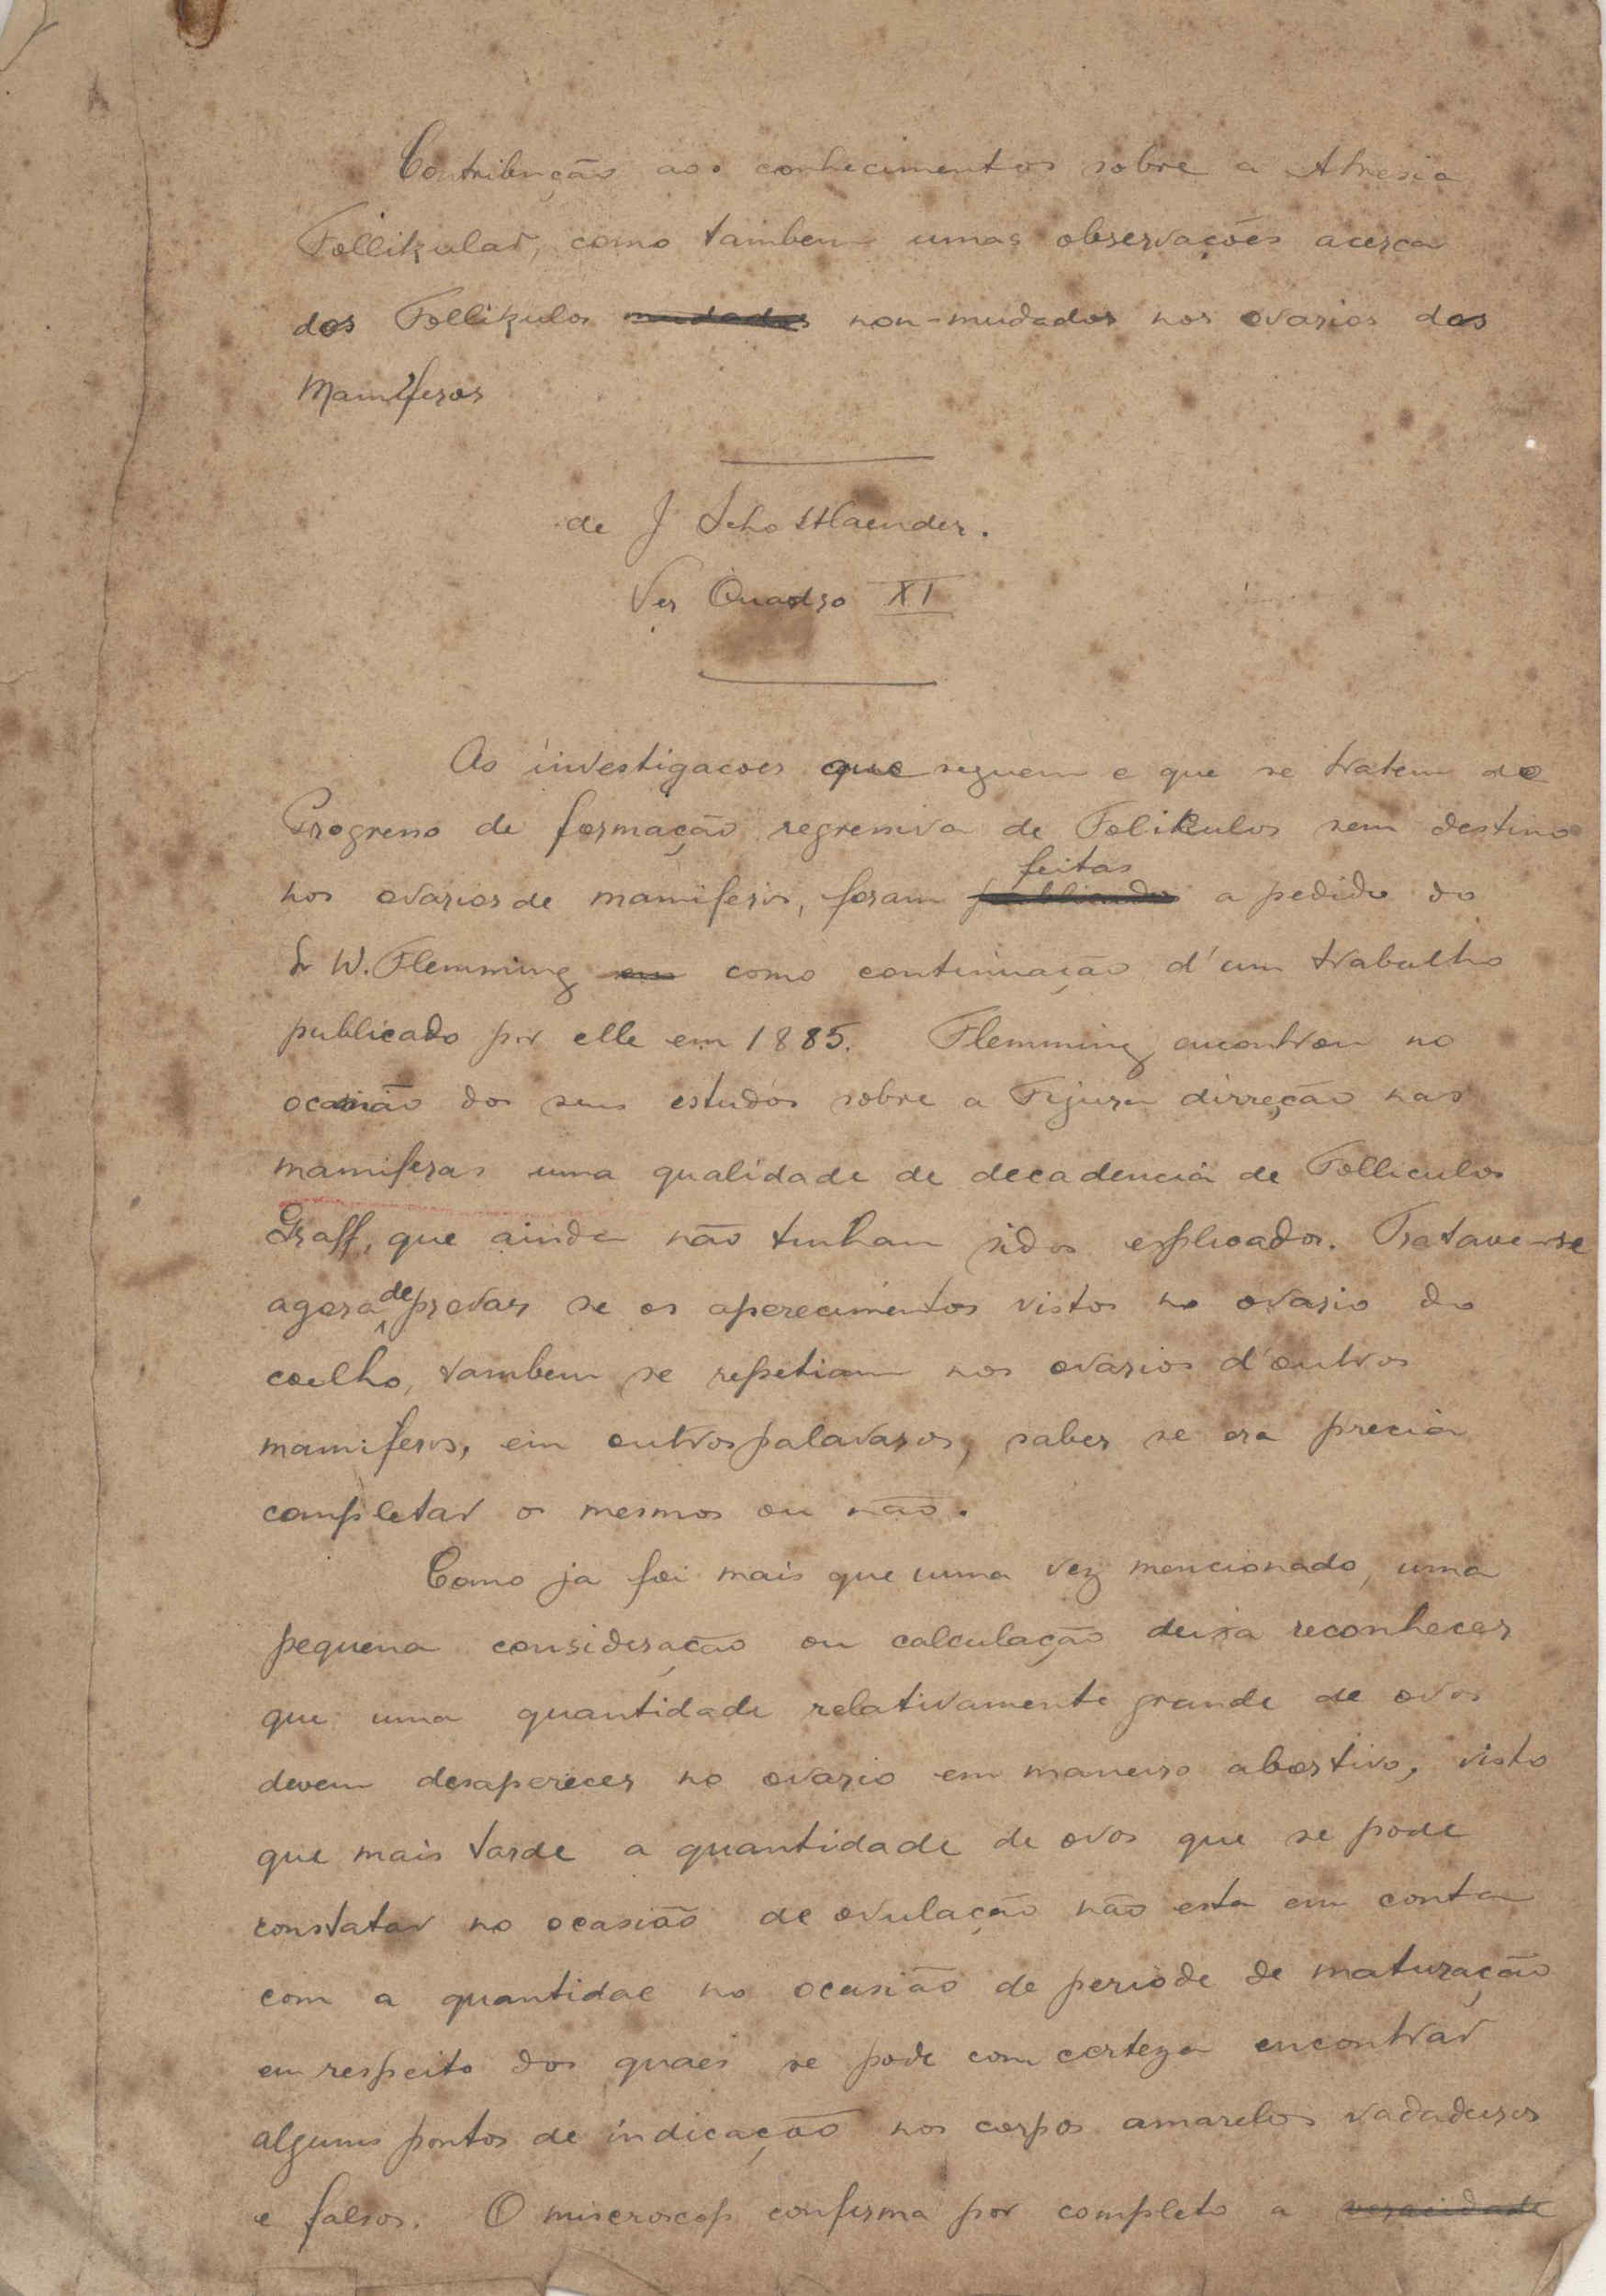 Contribuação aos conhecimentos sobre a Atresia
Follikular, como tambem umas observações acerca
dos Follikulos mudados non-mudados nos ovarios dos
Mamiferos
de J Schottlaender.
Ver Quadro XI
As investigacoes que seguem e que se tratem do
Progresso de formação regressiva de Folikulos sem destino
feitas
nos ovarios de mamiferos, foram publicados a pedido do
Sr W. Flemming como continuação d'um trabalho
publicado por elle em 1885. Flemming encontrou no
ocasião dos seus estudos sobre a Figura direção nas
mamiferas uma qualidade de decadencia de Folliculos
Graff, que ainda não tinham sidos esplicados. Tratava-se
agora de provar se os aperecimentos vistos no ovario do
coelho, tambem se repetiam nos ovarios d'outros
mamiferos, em outros palavaros, saber se era precia
completar os mesmos ou não.
Como ja foi mais que uma vez mencionado, uma
pequena consideração ou calculação deixa reconhecer
que uma quantidade relativamente grande de ovos
devem desaperecer no ovario em maneiro abortivo, visto
que mais tarde a quantidade de ovos que se pode
constatar no ocasião de ovulação não esta em conta
com a quantidae no ocasião de periode de maturação
em respeito dos quaes se pode com certeza encontrar
alguns pontos de indicação nos corpos amarelos vadadeiros
e falsos. O microscop confirma por completo a veracidade